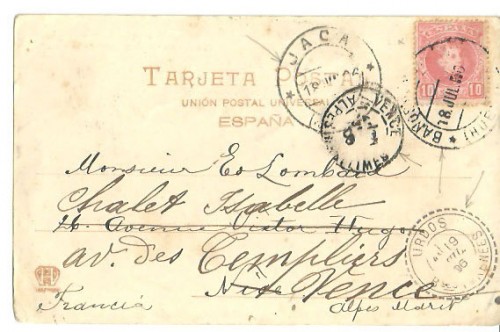 JACA
18 JUL 06
10 10
18 JUL 06
BAÑOS
TARJETA POSTAL
UNIÓN POSTAL UNIVERSAL
ESPAÑA
VENCE
ALPES MARITIMES
Monsieur Ed Lombard
Chalet Isabelle
26 Avenue Victor Hugo
av. des Templiers
Nice Vence
Francia Alpes Marit
URDOS